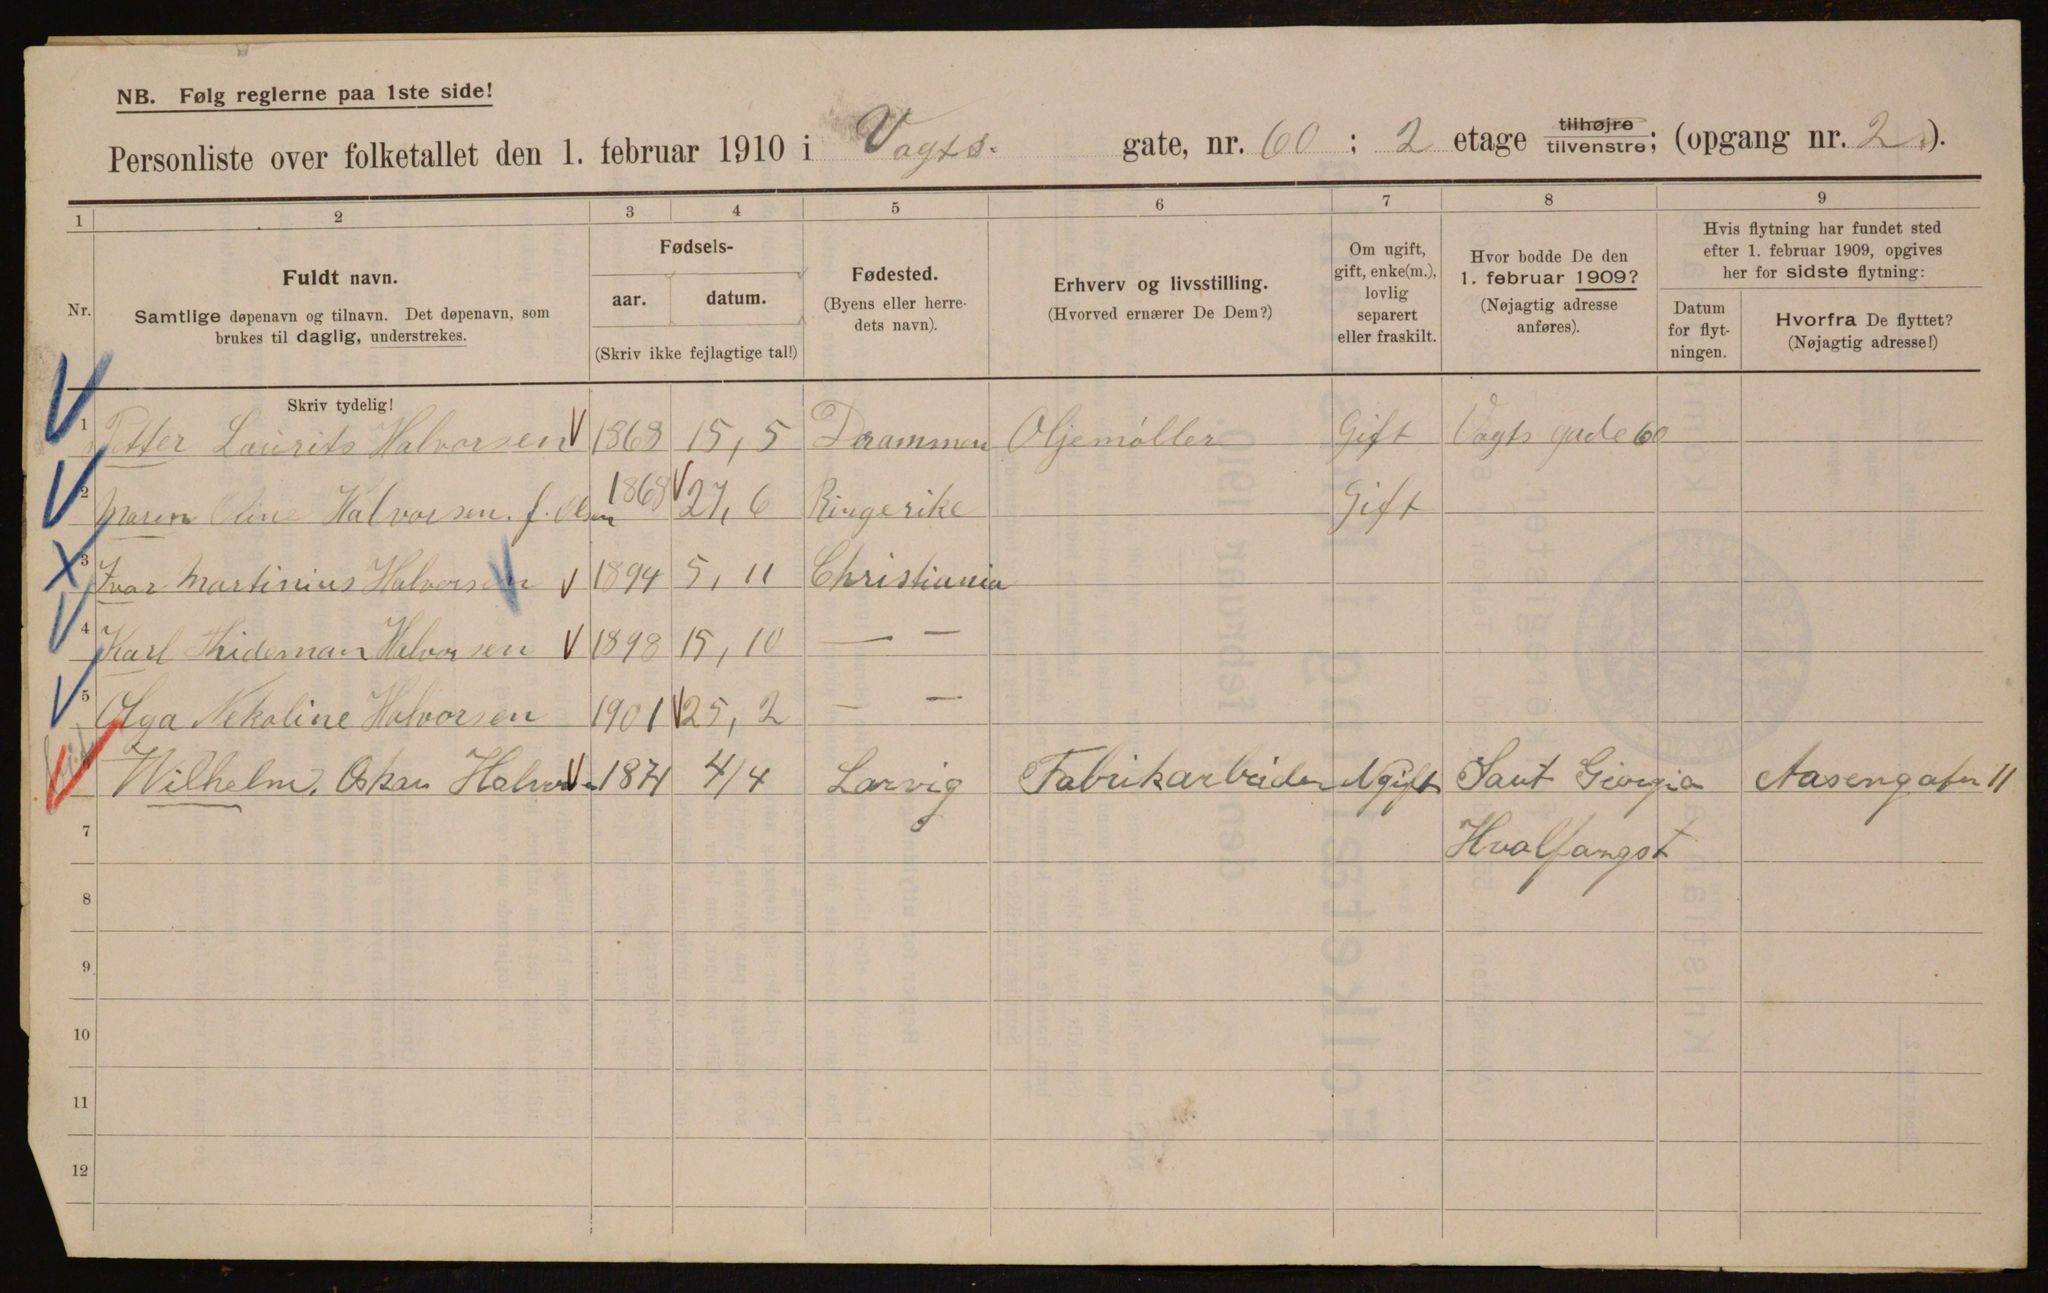 NB. Følg reglerne paa 1ste side!
Personliste over folketallet den 1. februar 1910 i Vogts. gate, nr. 60 : 2 etage tilhøjre tilvenstre; (opgang nr. 2.).
1 2 3 4 5 6 7 8 9
Nr.
Fuldt navn.
Samtlige døpenavn og tilnavn. Det døpenavn, som
brukes til daglig, understrekes.
Fødsels-
aar. datum.
(Skriv ikke fejlagtige tal!)
Fødested.
(Byens eller herre-
dets navn).
Erhverv og livsstilling.
(Hvorved ernærer De Dem?)
Om ugift,
gift, enke(m.),
lovlig
separert
eller fraskilt.
Hvor bodde De den
1. februar 1909?
(Nøjagtig adresse
anføres).
Hvis flytning har fundet sted
efter 1. februar 1909, opgives
her for sidste flytning:
Datum
for flyt-
ningen.
Hvorfra De flyttet?
(Nøjagtig adresse!)
Skriv tydelig!
1 Petter Laurits Halvorsen 1868 15,5 Drammen Oljemøller Gift Vogts gade 60
2 Maren Oline Halvorsen. f. Olsen 1868 27,6 Ringerike Gift
3 Ivar Martinius Halvorsen 1894 5,11 Christiania
4 Karl Thideman Halvorsen 1898 15,10 — —
5 Olga Nekoline Halvorsen 1901 25,2 — —
6 Wilhelm. Oskar Halvorsen 1874 4/4 Larvig Fabrikarbeider Ugift Saut Giorgia Aasengaten 11
7 Hvalfangst
8
9
10
11
12